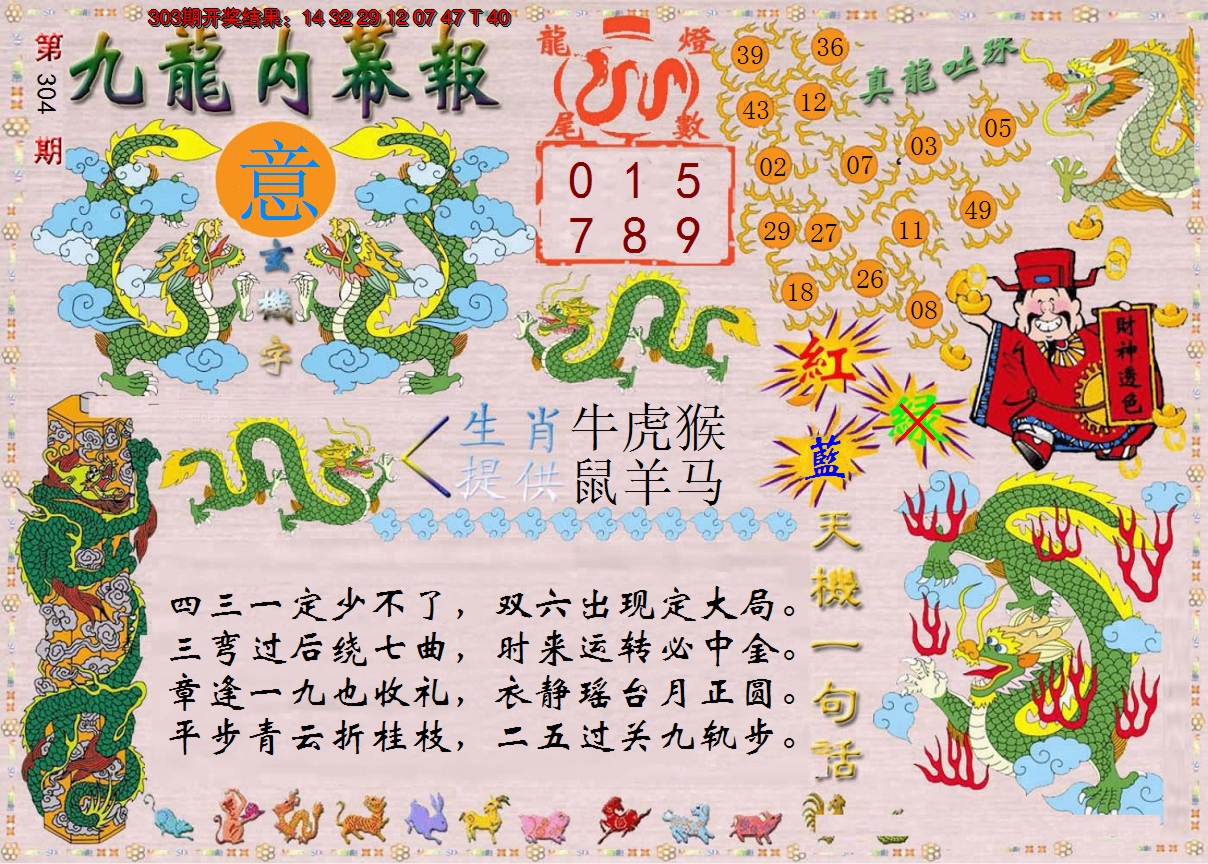 303期开奖结果：14 32 29 12 07 47 T 40
第304期
九龍内幕報
意
玄機字
龍燈
尾數
0 1 5
7 8 9
真龍吐珠
39
36
43
12
02
07
03
05
29
27
11
49
18
26
08
財神透色
紅
绿
藍
生肖 牛虎猴
提供 鼠羊马
天機一句話
四三一定少不了，双六出现定大局。
三弯过后绕七曲，时来运转必中金。
章逢一九也收礼，衣静瑶台月正圆。
平步青云折桂枝，二五过关九轨步。